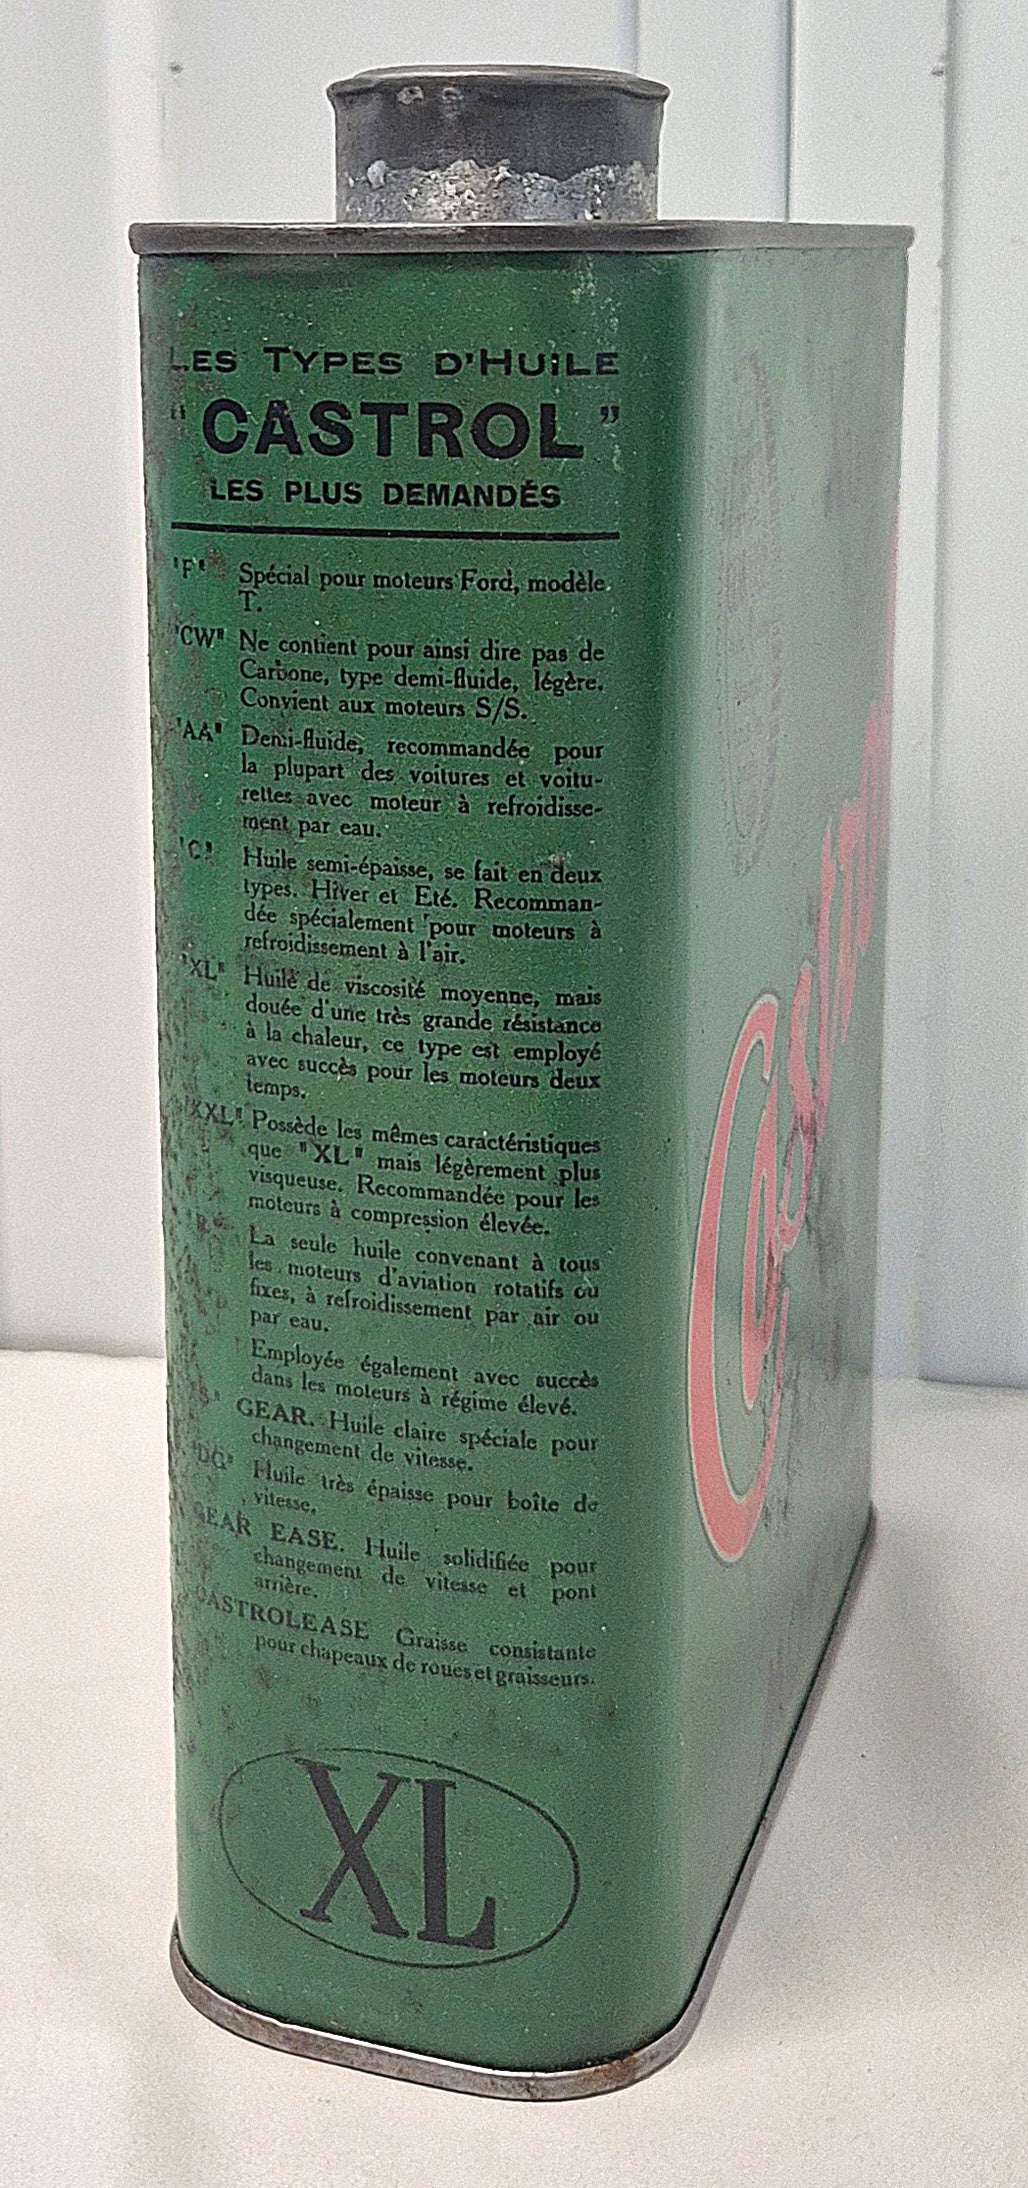 LES TYPES D'HUILE
"CASTROL"
LES PLUS DEMANDÉS
"F" Spécial pour moteurs Ford, modèle
T.
"CW" Ne contient pour ainsi dire pas de
Carbone, type demi-fluide, légère.
Convient aux moteurs S/S.
"AA" Demi-fluide, recommandée pour
la plupart des voitures et voitu-
rettes avec moteur à refroidisse-
ment par eau.
"C" Huile semi-épaisse, se fait en deux
types. Hiver et Eté. Recomman-
dée spécialement pour moteurs à
refroidissement à l'air.
"XL" Huile de viscosité moyenne, mais
douée d'une très grande résistance
à la chaleur, ce type est employé
avec succès pour les moteurs deux
temps.
"XXL" Possède les mêmes caractéristiques
que "XL" mais légèrement plus
visqueuse. Recommandée pour les
moteurs à compression élevée.
"R" La seule huile convenant à tous
les moteurs d'aviation rotatifs ou
fixes, à refroidissement par air ou
par eau.
Employée également avec succès
dans les moteurs à régime élevé.
"S" GEAR. Huile claire spéciale pour
changement de vitesse.
Huile très épaisse pour boîte de
vitesse.
GEAR EASE. Huile solidifiée pour
changement de vitesse et pont
arrière.
CASTROLEASE Graisse consistante
pour chapeaux de roues et graisseurs.
XL
Castrol